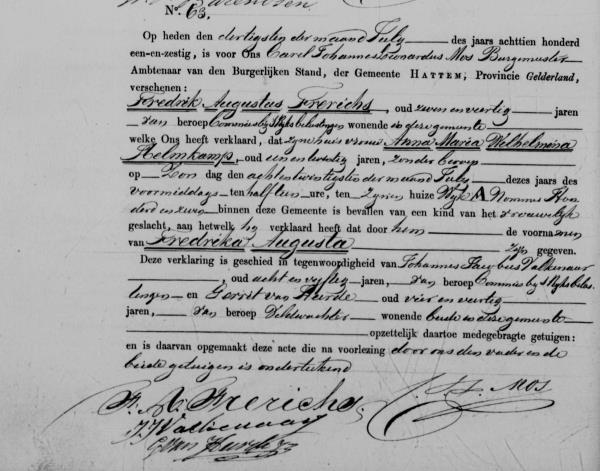 No. 63.
Op heden den dertigsten der maand July des jaars achttien honderd
een-en-zestig, is voor Ons Carel Johannes Leonardus Mos Burgemeester
Ambtenaar van den Burgerlijken Stand, der Gemeente HATTEM, Provincie Gelderland,
verschenen:
Fredrik Augustus Frerichs, oud zeven en veertig jaren
van beroep Commies by 's Ryks belastingen wonende in deze gemeente
welke Ons heeft verklaard, dat zyne huisvrouw Anna Maria Wilhelmina
Helmkamp, oud een en jaren, zonder beroep
op Zondag den achtentwintigsten der maand July dezes jaars des
voormiddags ten half tien ure, ten zynen huize Wyk A Nommer Hon
derd en zeven binnen deze Gemeente is bevallen van een kind van het vrouwelyk
geslacht, aan hetwelk hy verklaard heeft dat door hem de voornamen
van Fredrika Augusta zyn gegeven.
Deze verklaring is geschied in tegenwoordigheid van Johannes Jacobus Valkenaar
, oud acht en vyftig jaren, van beroep Commies by 's Ryks belas
tingen en Gerrit van Heerde oud vier en veertig
jaren, van beroep Veldwachter wonende beide in deze gemeente
opzettelijk daartoe medegebragte getuigen:
en is daarvan opgemaakt deze acte die na voorlezing door ons den vader en de
beide getuigen is onderteekend
F. A. Frerichs
J J Valkenaar
G van Heerde
C. J. L. Mos